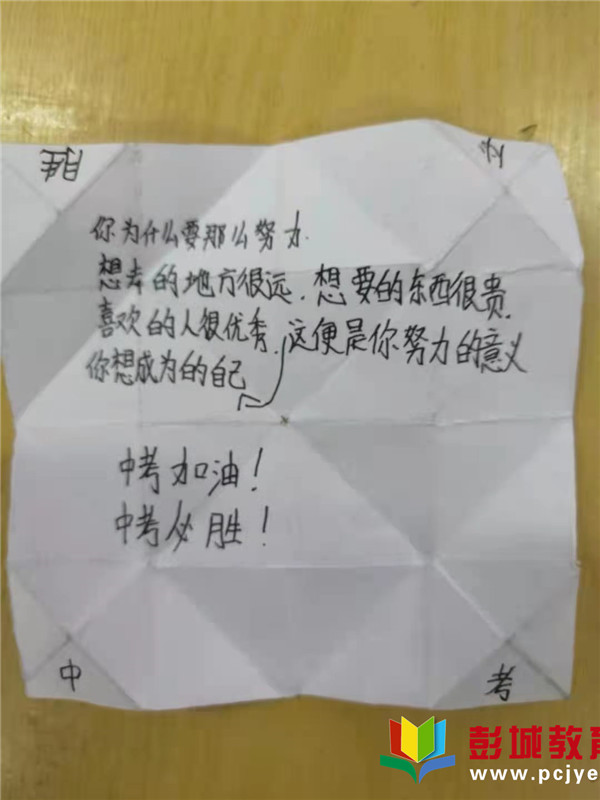 胜
必
你为什么要那么努力.
想去的地方很远.想要的东西很贵.
喜欢的人很优秀.这便是你努力的意义
你想成为的自己
中考加油!
中考必胜!
中
考
彭城教育
www.pcjye